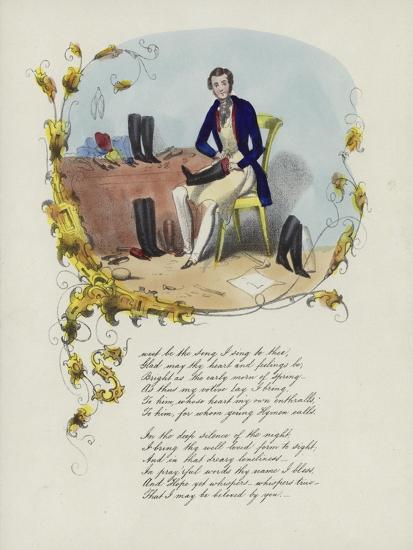 Sweet be the song I sing to thee,
Glad may thy heart and feelings be,
Bright as the early morn of Spring—
As thus my votive lay I bring!
To him, whose heart my own enthralls;
To him, for whom young Hymen calls.
In the deep silence of the night,
I bring thy well loved form to sight;
And in that dreary loneliness—
In pray'rful words thy name I bless,
And Hope yet whispers—whispers true—
That I may be beloved by you!—